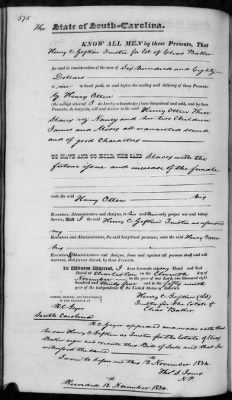 575
The State of South-Carolina.
KNOW ALL MEN by these Presents, That
Henry C. Trustee for Est. of Elias
for and in consideration of the sum of Six Hundred and Eighty
Dollars
to me in hand paid, at and before the sealing and delivery of these Presents,
by Henry Otten
(the receipt whereof I do hereby acknowledge) have bargained and sold, and by these
Presents, do bargain, sell and deliver to the said Henry Otten Three
Slaves viz Nancy and her two Children
James and all warranted sound
and of good Character
TO HAVE AND TO HOLD, THE SAID Slaves with the
future issue and increase of the female
unto the said Henry Otten his
Executors, Administrators and Assigns, to his and their only proper use and behoof,
forever. And I the said Henry C. Trustee as aforesaid
my
Executors and Administrators, the said bargained premises, unto the said Henry Otten
his
Executors, Administrators and Assigns, from and against all persons shall and will
warrant, and forever defend, by these Presents.
In Witness Whereof, I have hereunto set my Hand and Seal
Dated at Charleston on the
November in the year of our Lord one thousand eight
hundred and thirty four and in the fifty ninth
year of the Independence of the United States of America.
SIGNED, SEALED, AND DELIVERED
IN THE PRESENCE OF
Henry C. (LS)
Trustee for the Estate of
Elias
South Carolina
appeared and made oath that
he saw Henry C. Trustee for the Estate of Elias
sign and execute this Bill of Sale and that he
witnessed the same
Sworn to before me this 12 November 1834
N.P.
Recorded 12 November 1834.